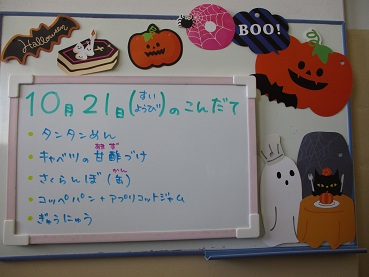 Halloween
BOO!
10月21日(すいようび)のこんだて
・タンタンめん
・キャベツの甘酢づけ
あまず
・さくらんぼ(缶)
かん
・コッペパン+アプリコットジャム
・ぎゅうにゅう